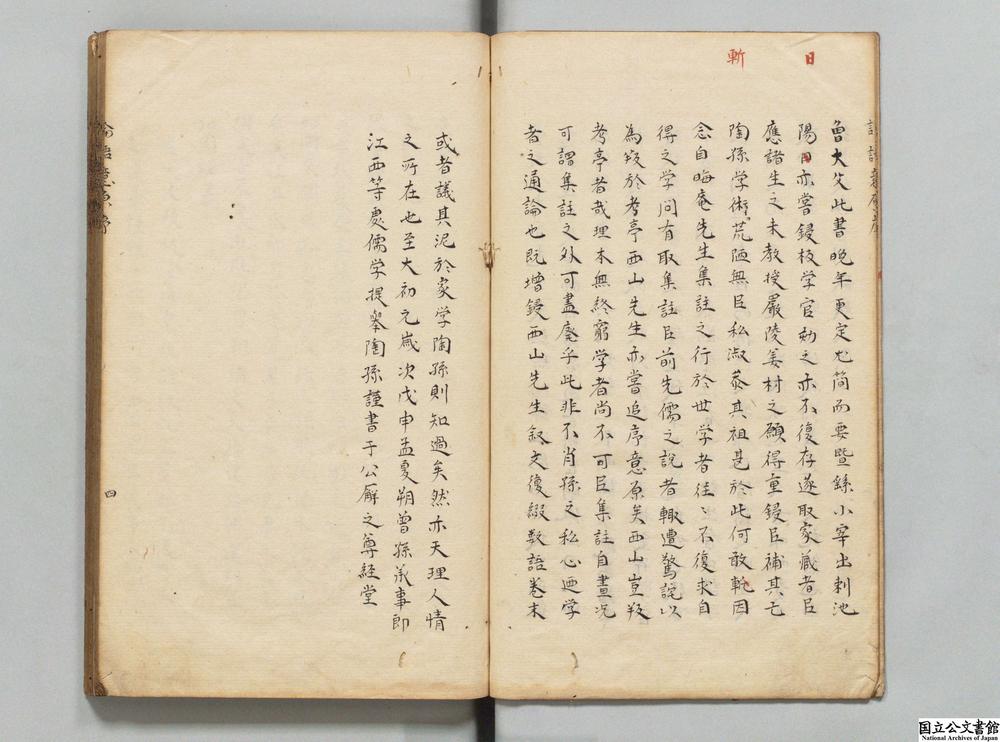 日
斬
曾大父此書晚年更定尤简而要暨繇小宰出刺池
陽日亦嘗鋟板学官劾之亦不復存遂取家藏者㠯
應諸生之未教授嚴陵姜材之願得重鋟㠯補其亡
陶孫学術荒陋無㠯私淑忝其祖甚於此何敢斬因
念自晦庵先生集註之行於世学者往〻不復求自
得之学问有取集註㠯前先儒之說者輒遭驚詫以
為贅於考亭西山先生亦嘗追序意原矣西山豈
考亭者㢤理本無終窮学者尚不可㠯集註自晝况
可謂集註之外可盡廢乎此非不肖孫之私心迺学
者之通論也既增鋟西山先生叙文復綴数語卷末
或者議其泥於家学陶孫則知過矣然亦天理人情
之所在也至大初元歲次戊申孟夏朔曾孫承事郎
江西等處儒学提舉陶孫謹書于公廨之尊經堂
四
国立公文書館
National Archives of Japan